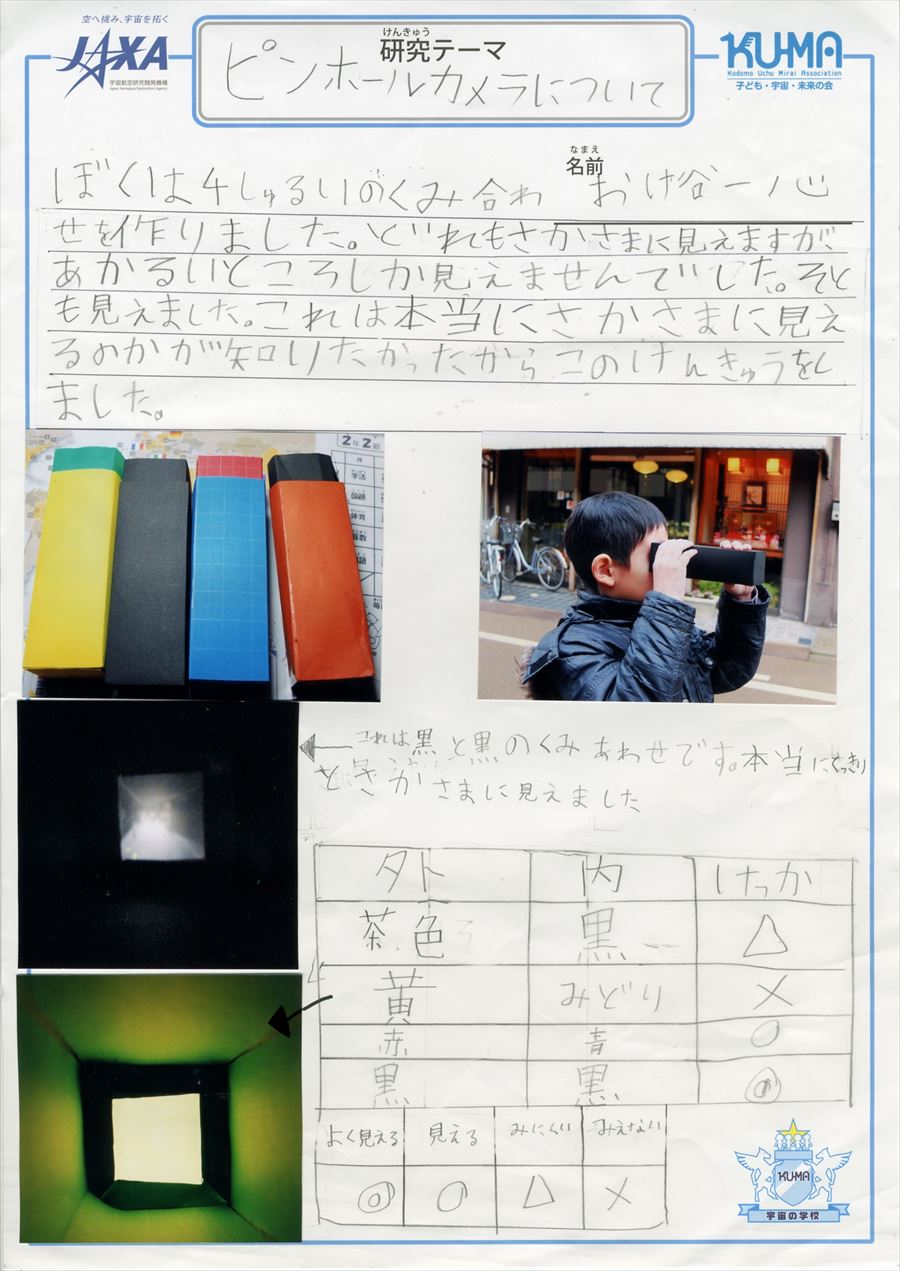 空へ挑み、宇宙を拓く
JAXA
宇宙航空研究開発機構
Japan Aerospace Exploration Agency
けんきゅう
研究テーマ
ピンホールカメラについて
KU-MA
Kodomo Uchu Mirai Association
子ども・宇宙・未来の会
なまえ
名前
おけ谷一心
ぼくは4しゅるいのくみ合わ
せを作りました。どれもさかさまに見えますが、
あかるいところしか見えませんでした。そと
も見えました。これは本当にさかさまに見え
るのかが知りたかったからこのけんきゅうをし
ました。
2年2組
月
学活
国語
体育
算数
これは黒と黒のくみあわせです。本当にくっきり
とさかさまに見えました
外 内 けっか
茶色 黒 △
黄 みどり ×
赤 青 ○
黒 黒 ◎
よく見える 見える みにくい みえない
◎ ○ △ ×
KU-MA
宇宙の学校